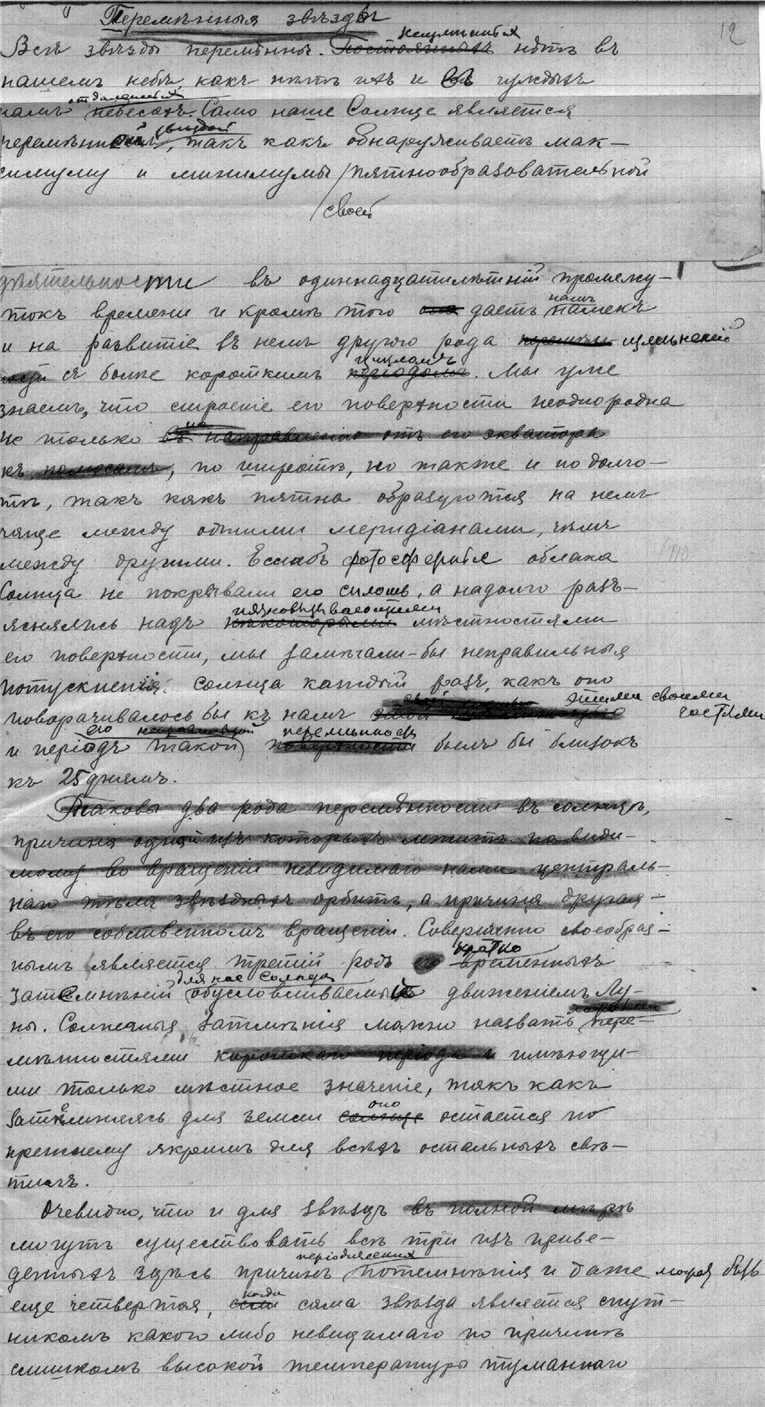 Перемѣнныя звѣзды
12
Всѣ звѣзды перемѣнны. Постоянныхъ нѣтъ въ
нашемъ небѣ какъ нѣтъ ихъ и въ чуждыхъ
отдаленныхъ
намъ небесахъ. Само наше Солнце является
звѣздой
перемѣнной, такъ какъ обнаруживаетъ мак-
симумы и минимумы пятнообразовательной
своей
дѣятельности въ одиннадцатилѣтній промежу-
токъ времени и кромѣ того даетъ намъ намекъ
и на развитіе въ немъ другого рода измѣненій
съ болѣе короткимъ періодомъ. Мы уже
знаемъ, что строеніе его поверхности неоднородна
не только въ направленіи отъ его экватора
къ полюсамъ, по широтѣ, но также и по долго-
тѣ, такъ какъ пятна образуются на немъ
чаще между одними меридіанами, чѣмъ
между другими. Еслибъ фотосферныя облака
Солнца не покрывали его сплошь, а надолго разъ-
яснялись надъ некоторыми мѣстностями
его поверхности, мы замѣчали-бы неправильныя
потускненія солнца каждый разъ, какъ оно
поворачивалось бы къ намъ этими своими частями
и періодъ такой перемѣнности былъ бы близокъ
къ 25 днямъ.
Таковы два рода перемѣнности въ солнцѣ,
причина одной изъ которыхъ лежитъ по види-
мому во вращеніи невидимаго нами централь-
наго тѣла звѣздныхъ орбитъ, а причина другая -
въ его собственномъ вращеніи. Совершенно своеобраз-
нымъ является третій родъ кратко временныхъ
для насъ Солнца
затемнѣній обусловливаемый движеніемъ Лу-
ны. Солнечныя затмѣнія можно назвать пере-
мѣнностями короткаго періода и имѣющи-
ми только мѣстное значеніе, такъ какъ
затемняясь для земли солнце оно остается по
прежнему яркимъ для всѣхъ остальныхъ свѣ-
тилъ.
Очевидно, что и для звѣздъ въ полной мѣрѣ
могутъ существовать всѣ три изъ приве-
періодическихъ
денныхъ здѣсь причинъ потемнѣнія и даже можетъ быть
еще четвертая, если когда сама звѣзда является спут-
никомъ какого либо невидимаго по причинѣ
слишкомъ высокой температуры туманнаго